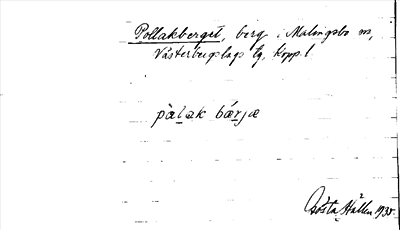 Pollakberget, berg i Malingsbo sn,
Västerbergslags tg, Kopp. l
pàlak bárjæ
Gösta Hallen 1935.